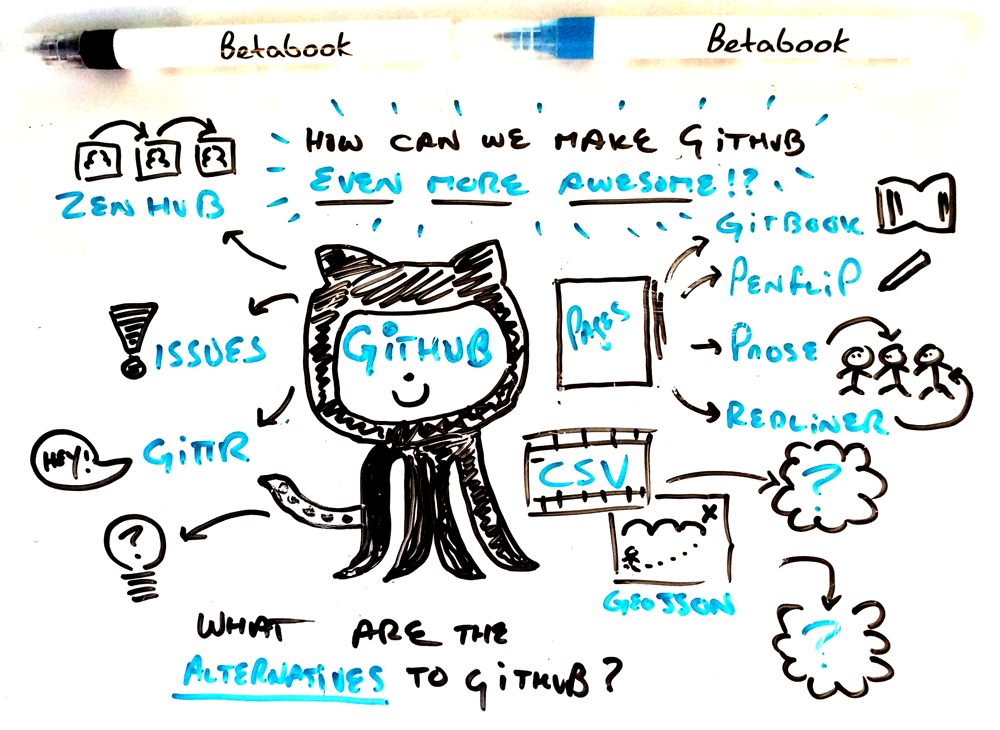 Betabook
Betabook
HOW CAN WE MAKE GITHUB
EVEN MORE AWESOME!?
ZENHUB
GITBOOK
PENFLIP
PAGES
ISSUES
GITHUB
PROSE
REDLINER
HEY!
GITTR
CSV
?
?
X
GEOJSON
?
WHAT ARE THE
ALTERNATIVES TO GITHUB?